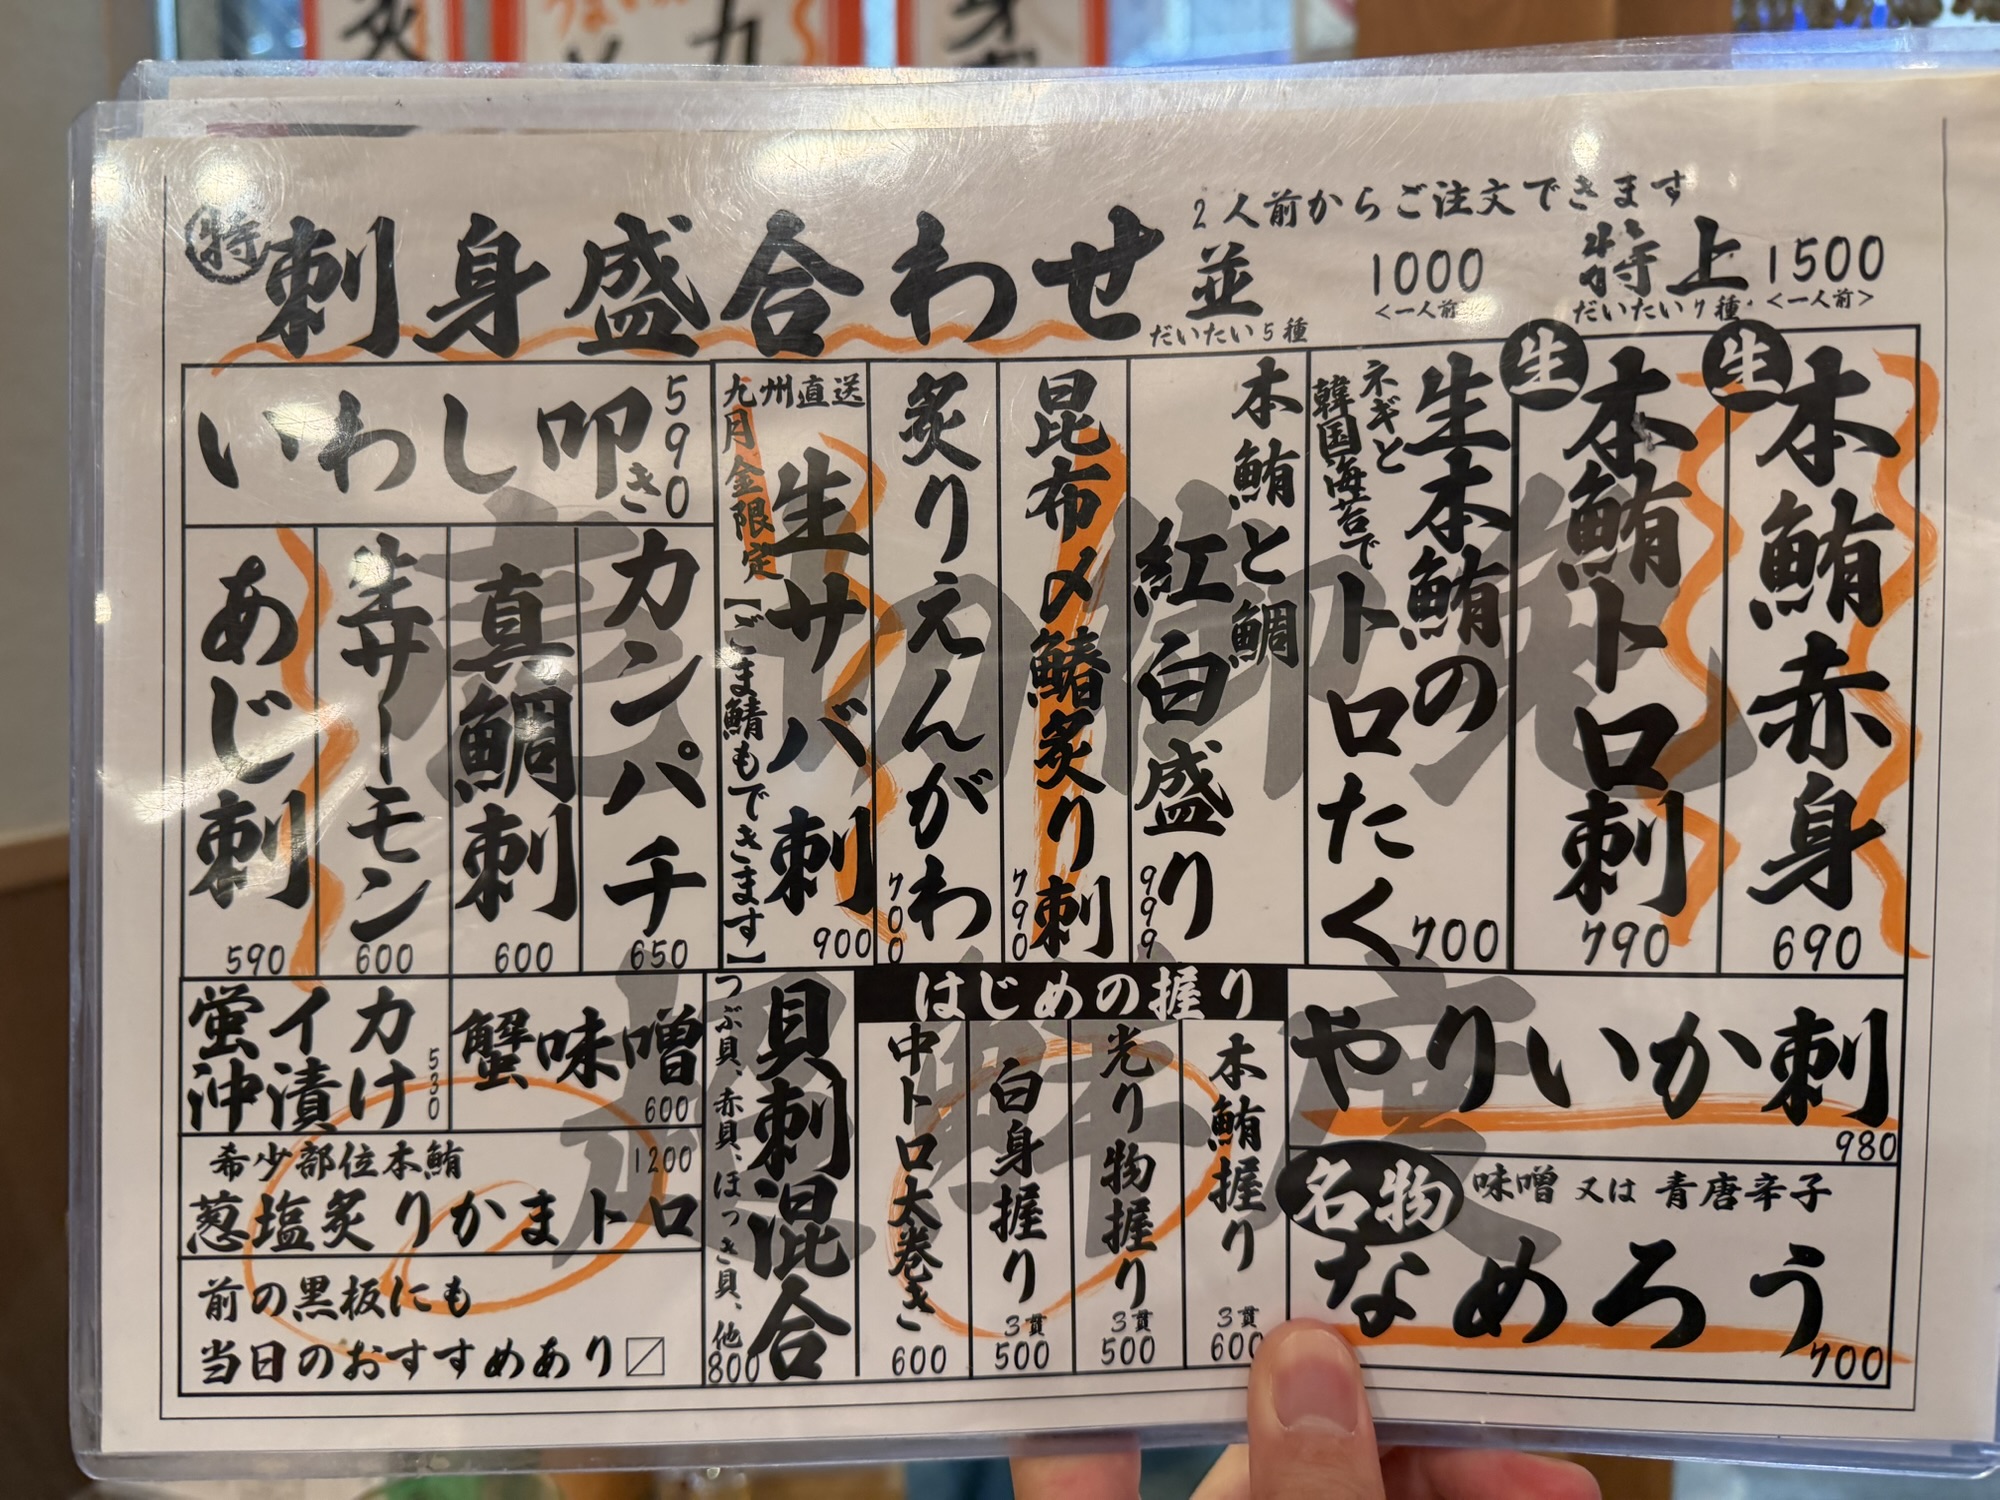 特
刺身盛合わせ
2人前からご注文できます
並
だいたい5種
1000
<一人前>
特上
だいたい7種
1500
<一人前>
生
本鮪赤身
690
生
本鮪トロ刺
790
生本鮪の
トロたく
ネギと
韓国海苔で
700
本鮪と鯛
紅白盛り
999
昆布〆鰆炙り刺
790
炙りえんがわ
700
九州直送
九月金限定
生サバ刺
【ごま鯖もできます】
900
いわし叩き
590
カンパチ
650
真鯛刺
600
生サーモン
600
あじ刺
590
やりいか刺
980
名物
味噌又は青唐辛子
なめろう
700
はじめの握り
本鮪握り
3貫
600
光り物握り
3貫
500
白身握り
3貫
500
中トロ太巻き
600
貝刺混合
つぶ貝、赤貝、ほっき貝、他
800
蟹味噌
600
蛍イカ
沖漬け
530
希少部位本鮪
1200
葱塩炙りかまトロ
前の黒板にも
当日のおすすめあり〼
売切御免
鮮度